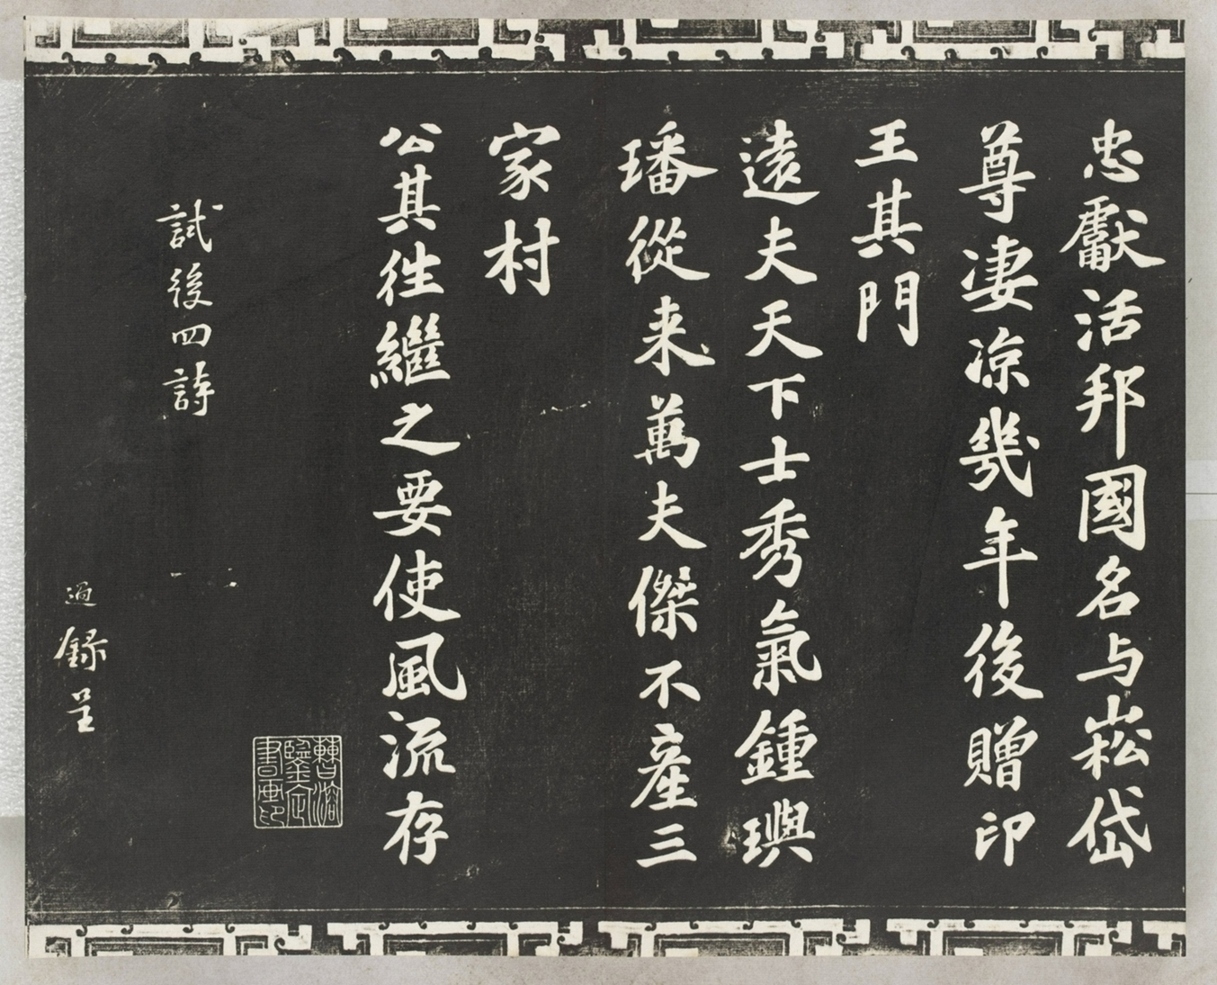 忠獻活邦國名与崧岱
尊淒凉幾年後贈印
王其門
遠夫天下士秀氣鍾璵
璠從来萬夫傑不產三
家村
公其往繼之要使風流存
試後四詩
過録呈